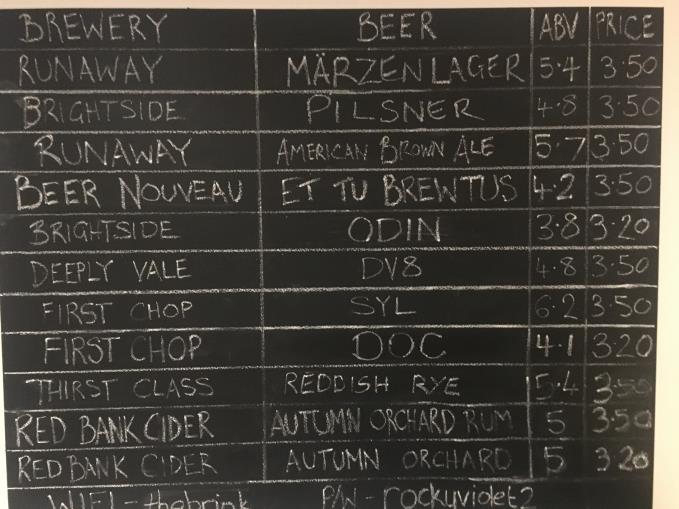 BREWERY BEER ABV PRICE
RUNAWAY MÄRZEN LAGER 5.4 3.50
BRIGHTSIDE PILSNER 4.8 3.50
RUNAWAY AMERICAN BROWN ALE 5.7 3.50
BEER NOUVEAU ET TU BREWTUS 4.2 3.50
BRIGHTSIDE ODIN 3.8 3.20
DEEPLY VALE DV8 4.8 3.50
FIRST CHOP SYL 6.2 3.50
FIRST CHOP DOC 4.1 3.20
THIRST CLASS REDDISH RYE 5.4 3.50
RED BANK CIDER AUTUMN ORCHARD RUM 5 3.50
RED BANK CIDER AUTUMN ORCHARD 5 3.20
WIFI - thebrink P/W - rockyviolet2